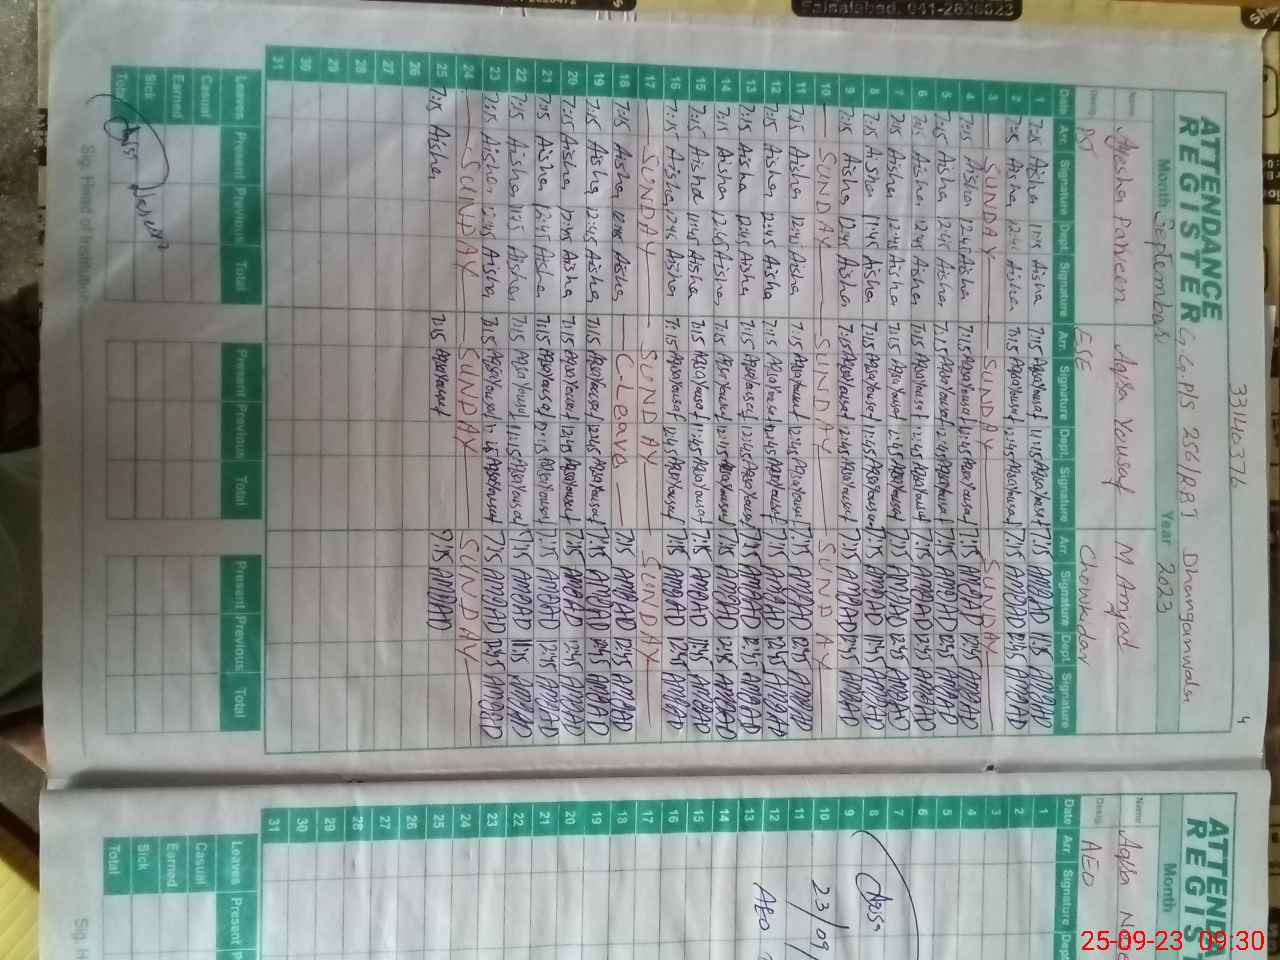 33140376
4
ATTENDANCE REGISTER
G.G.P/S 256/R.B I
Month September Year 2023
Name Ayesha Parveen Aqsa Yousaf M Amjad
Desig. PST ESE Chowkidar
Date Arr. Signature Dept. Signature Arr. Signature Dept. Signature Arr. Signature Dept. Signature
1 7:15 Aisha 11:15 Aisha 7:15 Aqsa Yousaf 11:15 Aqsa Yousaf 7:15 AMJAD 11:15 AMJAD
2 7:15 Aisha 12:45 Aisha 7:15 Aqsa Yousaf 12:45 Aqsa Yousaf 7:15 AMJAD 12:45 AMJAD
3 SUNDAY SUNDAY SUNDAY
4 7:15 Aisha 12:45 Aisha 7:15 Aqsa Yousaf 12:45 Aqsa Yousaf 7:15 AMJAD 12:45 AMJAD
5 7:15 Aisha 12:45 Aisha 7:15 Aqsa Yousaf 12:45 Aqsa Yousaf 7:15 AMJAD 12:45 AMJAD
6 7:15 Aisha 12:45 Aisha 7:15 Aqsa Yousaf 12:45 Aqsa Yousaf 7:15 AMJAD 12:45 AMJAD
7 7:15 Aisha 12:45 Aisha 7:15 Aqsa Yousaf 12:45 Aqsa Yousaf 7:15 AMJAD 12:45 AMJAD
8 7:15 Aisha 11:45 Aisha 7:15 Aqsa Yousaf 11:45 Aqsa Yousaf 7:15 AMJAD 11:45 AMJAD
9 7:15 Aisha 12:45 Aisha 7:15 Aqsa Yousaf 12:45 Aqsa Yousaf 7:15 AMJAD 12:45 AMJAD
10 SUNDAY SUNDAY SUNDAY
11 7:15 Aisha 12:45 Aisha 7:15 Aqsa Yousaf 12:45 Aqsa Yousaf 7:15 AMJAD 12:45 AMJAD
12 7:15 Aisha 12:45 Aisha 7:15 Aqsa Yousaf 12:45 Aqsa Yousaf 7:15 AMJAD 12:45 AMJAD
13 7:15 Aisha 12:45 Aisha 7:15 Aqsa Yousaf 12:45 Aqsa Yousaf 7:15 AMJAD 12:45 AMJAD
14 7:15 Aisha 12:45 Aisha 7:15 Aqsa Yousaf 12:15 Aqsa Yousaf 7:15 AMJAD 12:45 AMJAD
15 7:15 Aisha 11:45 Aisha 7:15 Aqsa Yousaf 11:45 Aqsa Yousaf 7:15 AMJAD 11:45 AMJAD
16 7:15 Aisha 12:45 Aisha 7:15 Aqsa Yousaf 12:45 Aqsa Yousaf 7:15 AMJAD 12:45 AMJAD
17 SUNDAY SUNDAY SUNDAY
18 7:15 Aisha 12:45 Aisha C-Leave 7:15 AMJAD 12:45 AMJAD
19 7:15 Aisha 12:45 Aisha 7:15 Aqsa Yousaf 12:45 Aqsa Yousaf 7:15 AMJAD 12:45 AMJAD
20 7:15 Aisha 12:45 Aisha 7:15 Aqsa Yousaf 12:45 Aqsa Yousaf 7:15 AMJAD 12:45 AMJAD
21 7:15 Aisha 12:45 Aisha 7:15 Aqsa Yousaf 12:15 Aqsa Yousaf 7:15 AMJAD 12:45 AMJAD
22 7:15 Aisha 11:45 Aisha 7:15 Aqsa Yousaf 11:15 Aqsa Yousaf 7:15 AMJAD 11:15 AMJAD
23 7:15 Aisha 12:45 Aisha 7:15 Aqsa Yousaf Aqsa Yousaf 7:15 AMJAD 12:45 AMJAD
24 SUNDAY SUNDAY SUNDAY
25 7:15 Aisha 7:15 Aqsa Yousaf 7:15 AMJAD
26
27
28
29
30
31
Leaves Present Previous Total Present Previous Total Present Previous Total
Casual
Earned
Sick
Total
Sig. Head of Institution
ATTENDA
REGIS
Month
Name Aqsa
Desig. AEO
Date Arr. Signature Dept
1
2
3
4
5
6
7
8
9
10 23/09/
11
12 AEO
13
14
15
16
17
18
19
20
21
22
23
24
25
26
27
28
29
30
31
Leaves Present P
Casual
Earned
Sick
Total
Sig. H
Faisalabad. 041-2626023
25-09-23 09:30